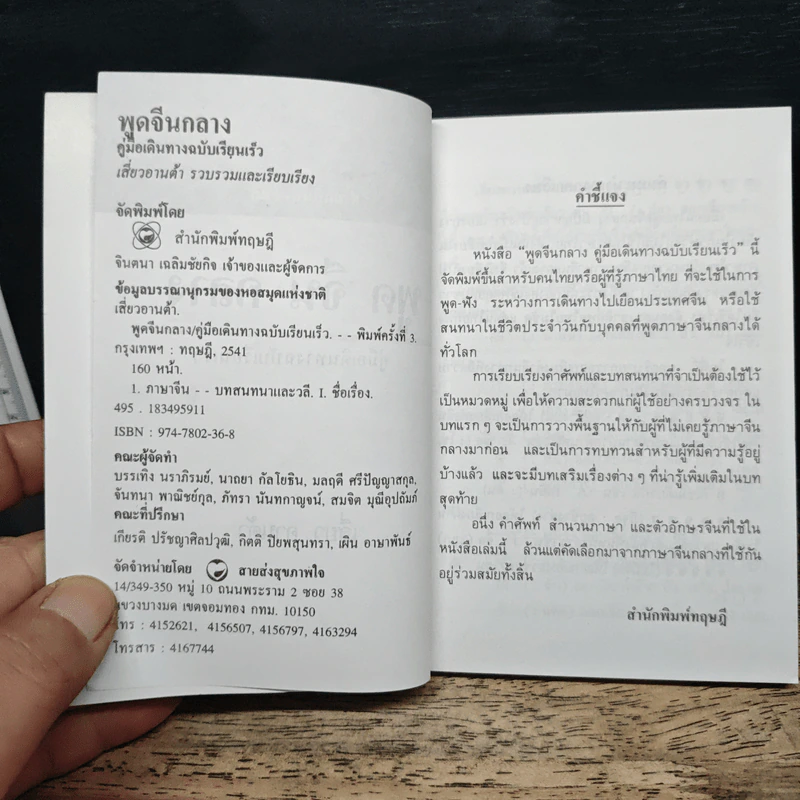 พูดจีนกลาง
คู่มือเดินทางฉบับเรียนเร็ว
เสี่ยวอานต้า รวบรวมและเรียบเรียง
จัดพิมพ์โดย
สำนักพิมพ์ทฤษฎี
จินตนา เฉลิมชัยกิจ เจ้าของและผู้จัดการ
ข้อมูลบรรณานุกรมของหอสมุดแห่งชาติ
เสี่ยวอานต้า.
พูดจีนกลาง/คู่มือเดินทางฉบับเรียนเร็ว. - - พิมพ์ครั้งที่ 3.
กรุงเทพฯ : ทฤษฎี, 2541
160 หน้า.
1. ภาษาจีน - - บทสนทนาและวลี. I. ชื่อเรื่อง.
495 . 183495911
ISBN : 974-7802-36-8
คณะผู้จัดทำ
บรรเทิง นราภิรมย์, นาถยา กัลโยธิน, มลฤดี ศรีปัญญาสกุล,
จันทนา พาณิชย์กุล, ภัทรา นันทกาญจน์, สมจิต มุณีอุปถัมภ์
คณะที่ปรึกษา
เกียรติ ปรัชญาศิลปวุฒิ, กิตติ ปิยพสุนทรา, เผิน อาษาพันธ์
จัดจำหน่ายโดย สายส่งสุขภาพใจ
14/349-350 หมู่ 10 ถนนพระราม 2 ซอย 38
แขวงบางมด เขตจอมทอง กทม. 10150
โทร : 4152621, 4156507, 4156797, 4163294
โทรสาร : 4167744
คำชี้แจง
หนังสือ “พูดจีนกลาง คู่มือเดินทางฉบับเรียนเร็ว” นี้
จัดพิมพ์ขึ้นสำหรับคนไทยหรือผู้ที่รู้ภาษาไทย ที่จะใช้ในการ
พูด-ฟัง ระหว่างการเดินทางไปเยือนประเทศจีน หรือใช้
สนทนาในชีวิตประจำวันกับบุคคลที่พูดภาษาจีนกลางได้
ทั่วโลก
การเรียบเรียงคำศัพท์และบทสนทนาที่จำเป็นต้องใช้ไว้
เป็นหมวดหมู่ เพื่อให้ความสะดวกแก่ผู้ใช้อย่างครบวงจร ใน
บทแรก ๆ จะเป็นการวางพื้นฐานให้กับผู้ที่ไม่เคยรู้ภาษาจีน
กลางมาก่อน และเป็นการทบทวนสำหรับผู้ที่มีความรู้อยู่
บ้างแล้ว และจะมีบทเสริมเรื่องต่าง ๆ ที่น่ารู้เพิ่มเติมในบท
สุดท้าย
อนึ่ง คำศัพท์ สำนวนภาษา และตัวอักษรจีนที่ใช้ใน
หนังสือเล่มนี้ ล้วนแต่คัดเลือกมาจากภาษาจีนกลางที่ใช้กัน
อยู่ร่วมสมัยทั้งสิ้น
สำนักพิมพ์ทฤษฎี